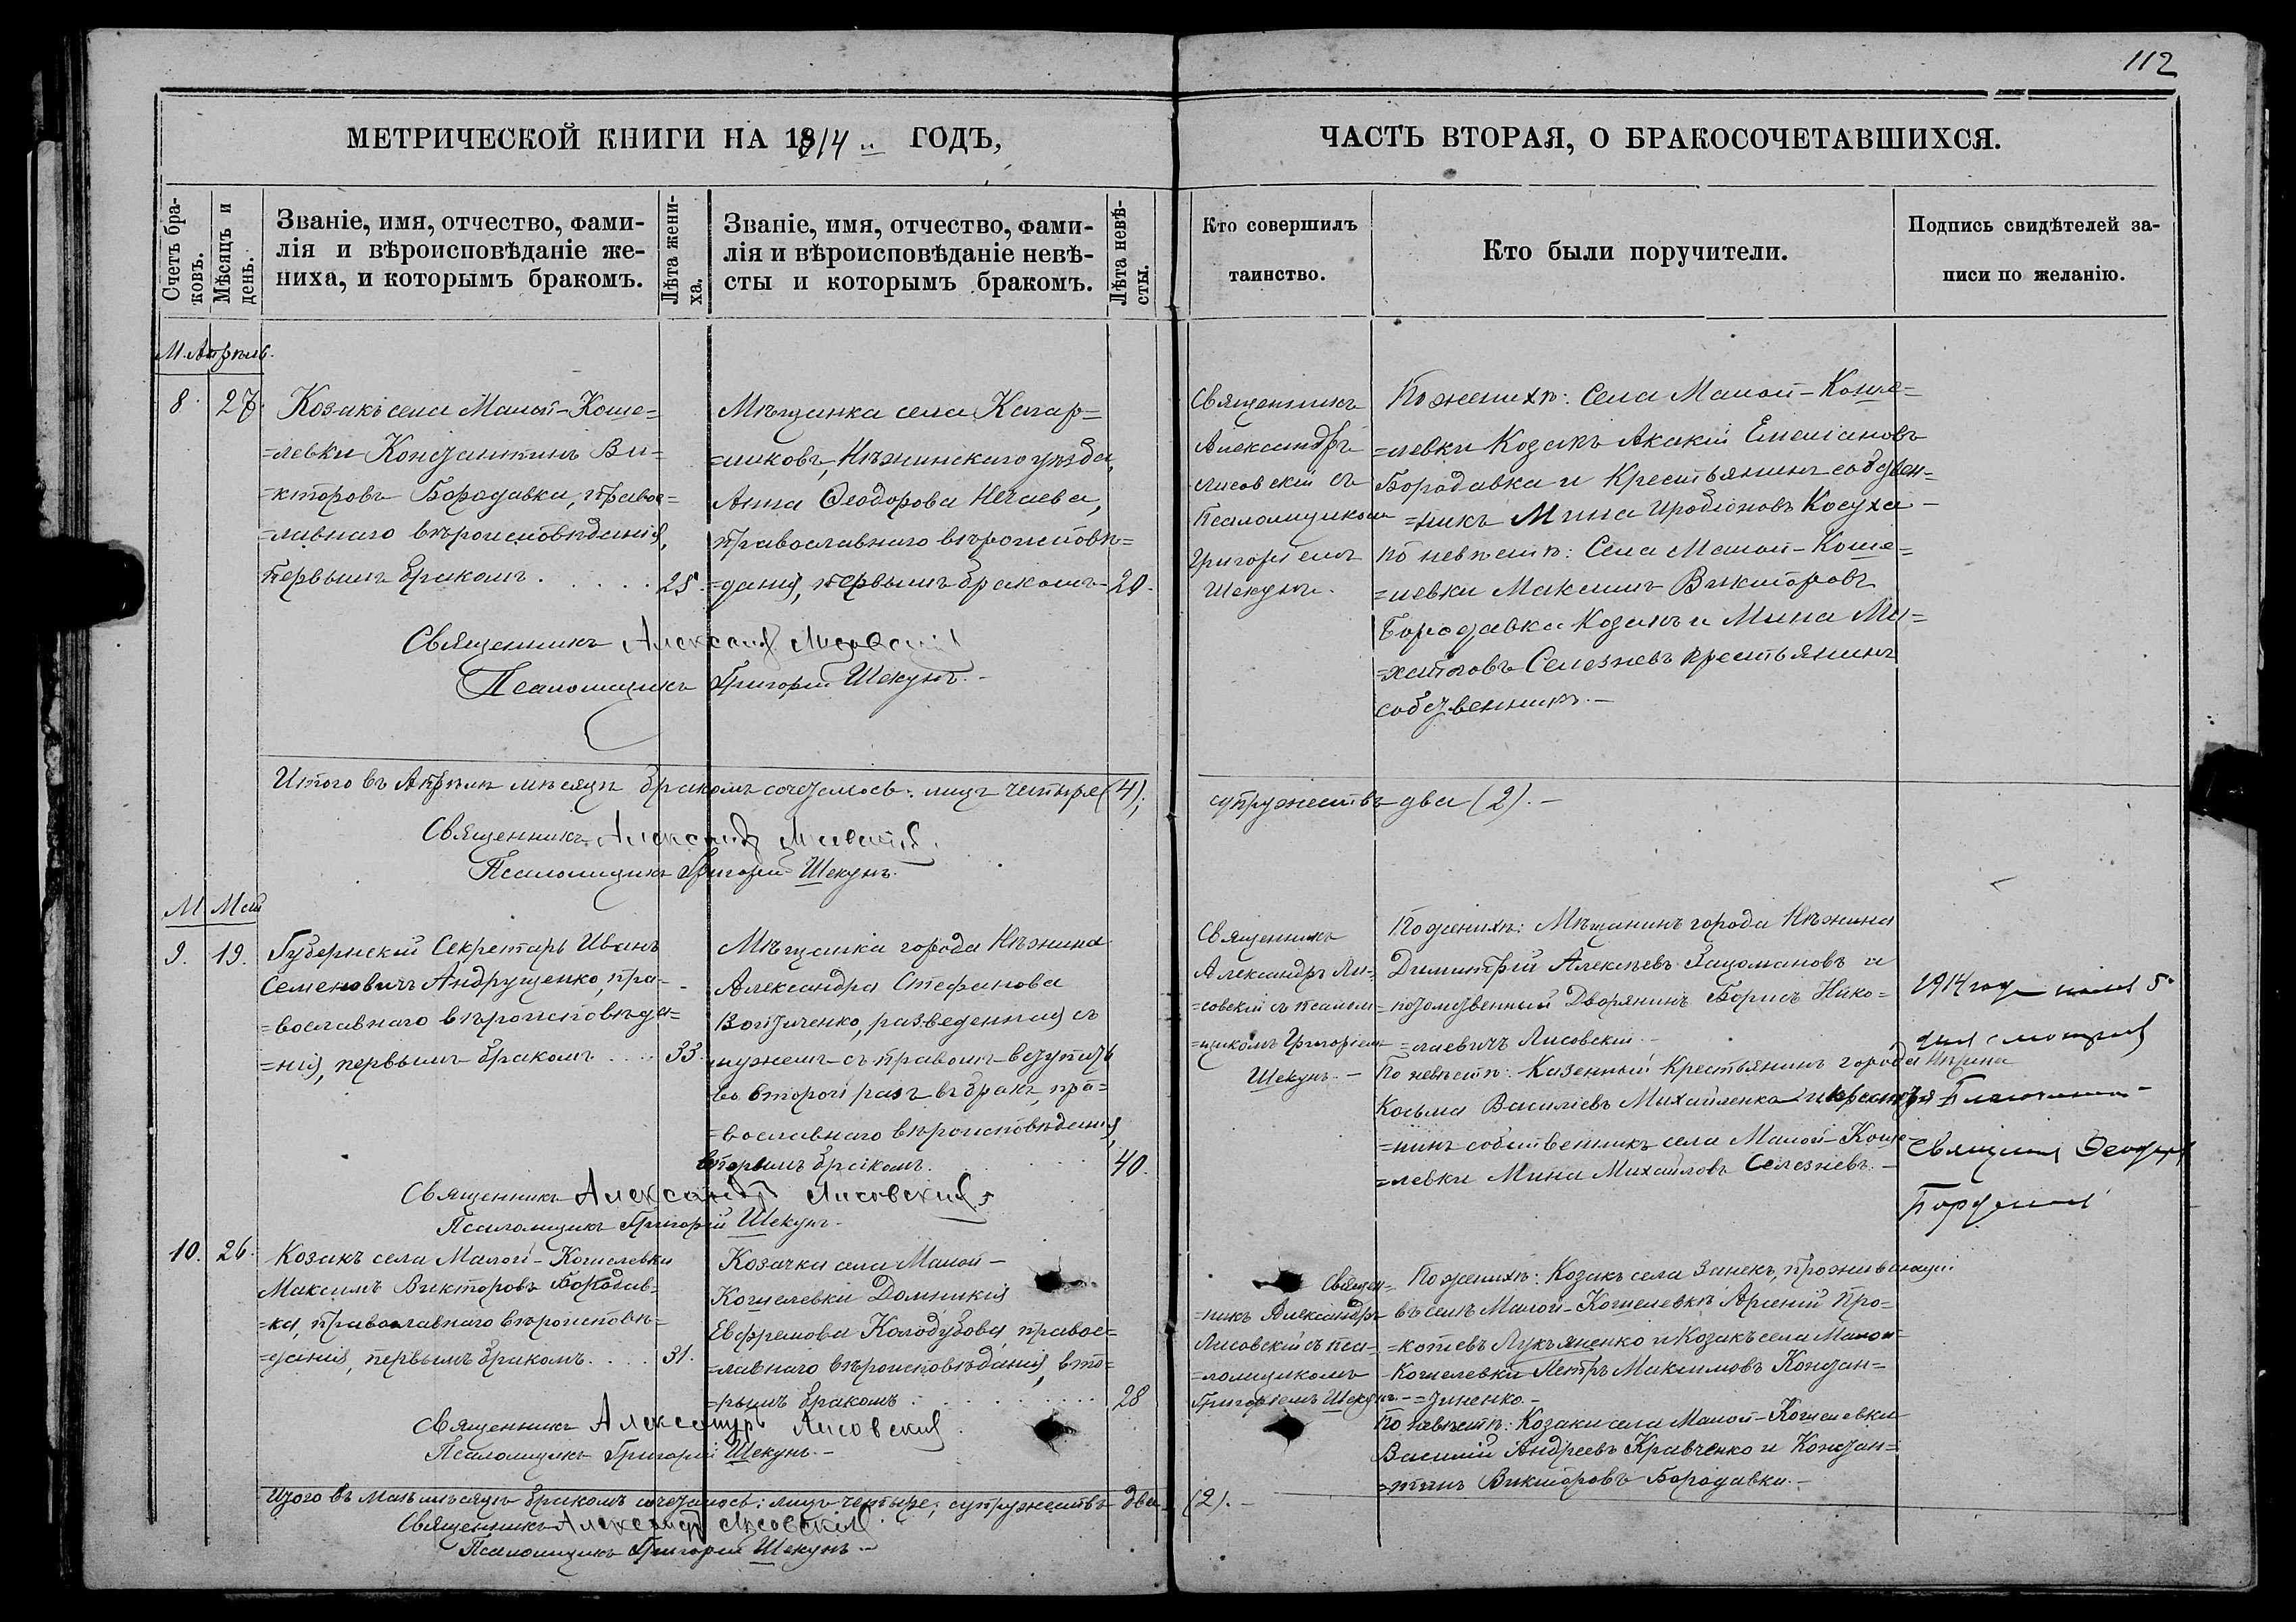 112
МЕТРИЧЕСКОЙ КНИГИ НА 1914 ГОДЪ,
ЧАСТЬ ВТОРАЯ, О БРАКОСОЧЕТАВШИХСЯ.
Счетъ бра-
ковъ.
Мѣсяцъ и
день.
Званіе, имя, отчество, фами-
лія и вѣроисповѣданіе же-
ниха, и которымъ бракомъ.
Лѣта жени-
ха.
Званіе, имя, отчество, фами-
лія и вѣроисповѣданіе невѣ-
сты и которымъ бракомъ.
Лѣта невѣ-
сты.
Кто совершилъ
таинство.
Кто были поручители.
Подпись свидѣтелей за-
писи по желанію.
М. Апрѣль.
8. 27.
Козакъ села Малой-Коше=
=левки Константинъ Ви=
=кторовъ Бородавка, право=
=лавнаго вѣроисповѣданія,
первымъ бракомъ. 25.
Мѣщанка села
Нѣжинскаго уѣзда,
Анна Ѳеодорова Нечаева,
православнаго вѣроисповѣ=
=данія, первымъ бракомъ 20.
Священникъ
Александръ
Лисовскій съ
Псаломщикомъ
Григоріемъ
Шекунъ.
По женихѣ: Села Малой-Коше=
=левки Козакъ Акакій Емеліановъ
Бородавка и Крестьянинъ собствен=
=никъ Мина Иродіоновъ Косуха
По невѣстѣ: Села Малой-Коше=
=левки Максимъ Викторовъ
Бородавка Козакъ и Мина Ми=
=хайловъ Селезневъ крестьянинъ
собственникъ.
Священникъ Александръ Лисовскій
Псаломщикъ Григорій Шекунъ.
Итого въ Апрѣлѣ мѣсяцѣ бракомъ сочеталось: лицъ четыре (4);
супружествъ два (2).
Священникъ Александръ Лисовскій
Псаломщикъ Григорій Шекунъ.
М. Май
9. 19.
Губернскій Секретарь Иванъ
Семеновичъ Андрущенко, пра-
=вославнаго вѣроисповѣда=
=нія, первымъ бракомъ 33.
Мѣщанка города Нѣжина
Александра Стефанова
разведенная съ
мужемъ съ правомъ вступить
во второй разъ въ бракъ, пра=
=вославнаго вѣроисповѣданія,
вторымъ бракомъ. 40.
Священникъ
Александръ Ли-
=совскій съ псалом=
=щикомъ Григоріемъ
Шекунъ.
По женихѣ: Мѣщанинъ города Нѣжина
Димитрій Алексѣевъ и
потомственный Дворянинъ Борисъ Нико=
=лаевичъ Лисовскій.
По невѣстѣ: Казенный Крестьянинъ города Нѣжина
Косьма Василіевъ Михайленко и крестья
=нинъ собственникъ села Малой-Коше
=левки Мина Михайловъ Селезневъ.
1914 года 5
Священникъ Ѳеодоръ
Священникъ Александръ Лисовскій
Псаломщикъ Григорій Шекунъ
10. 26.
Козакъ села Малой-Кошелевки
Максимъ Викторовъ Бородав=
=ка, православнаго вѣроисповѣ=
=данія, первымъ бракомъ. 31.
Козачка села Малой-
Кошелевки Домникія
Евфремова Колодубова, правос=
=лавнаго вѣроисповѣданія, вто=
=рымъ бракомъ. 28
Священ=
=никъ Александръ
Лисовскій съ пса-
=ломщикомъ
Григоріемъ Шекунъ.
По женихѣ: Козакъ села Занекъ, проживающій
въ селѣ Малой-Кошелевкѣ Арсеній Про=
=копіевъ Лукьяненко и Козакъ села Малой=
Кошелевки Петръ Максимовъ Констан=
=тиненко.
По невѣстѣ: Козаки села Малой-Кошелевки
Василій Андреевъ Кравченко и Констан=
=тинъ Викторовъ Бородавка.
Священникъ Александръ Лисовскій
Псаломщикъ Григорій Шекунъ.
Итого въ Маѣ мѣсяцѣ бракомъ сочеталось: лицъ четыре; супружествъ два (2).
Священникъ Александръ Лисовскій
Псаломщикъ Григорій Шекунъ